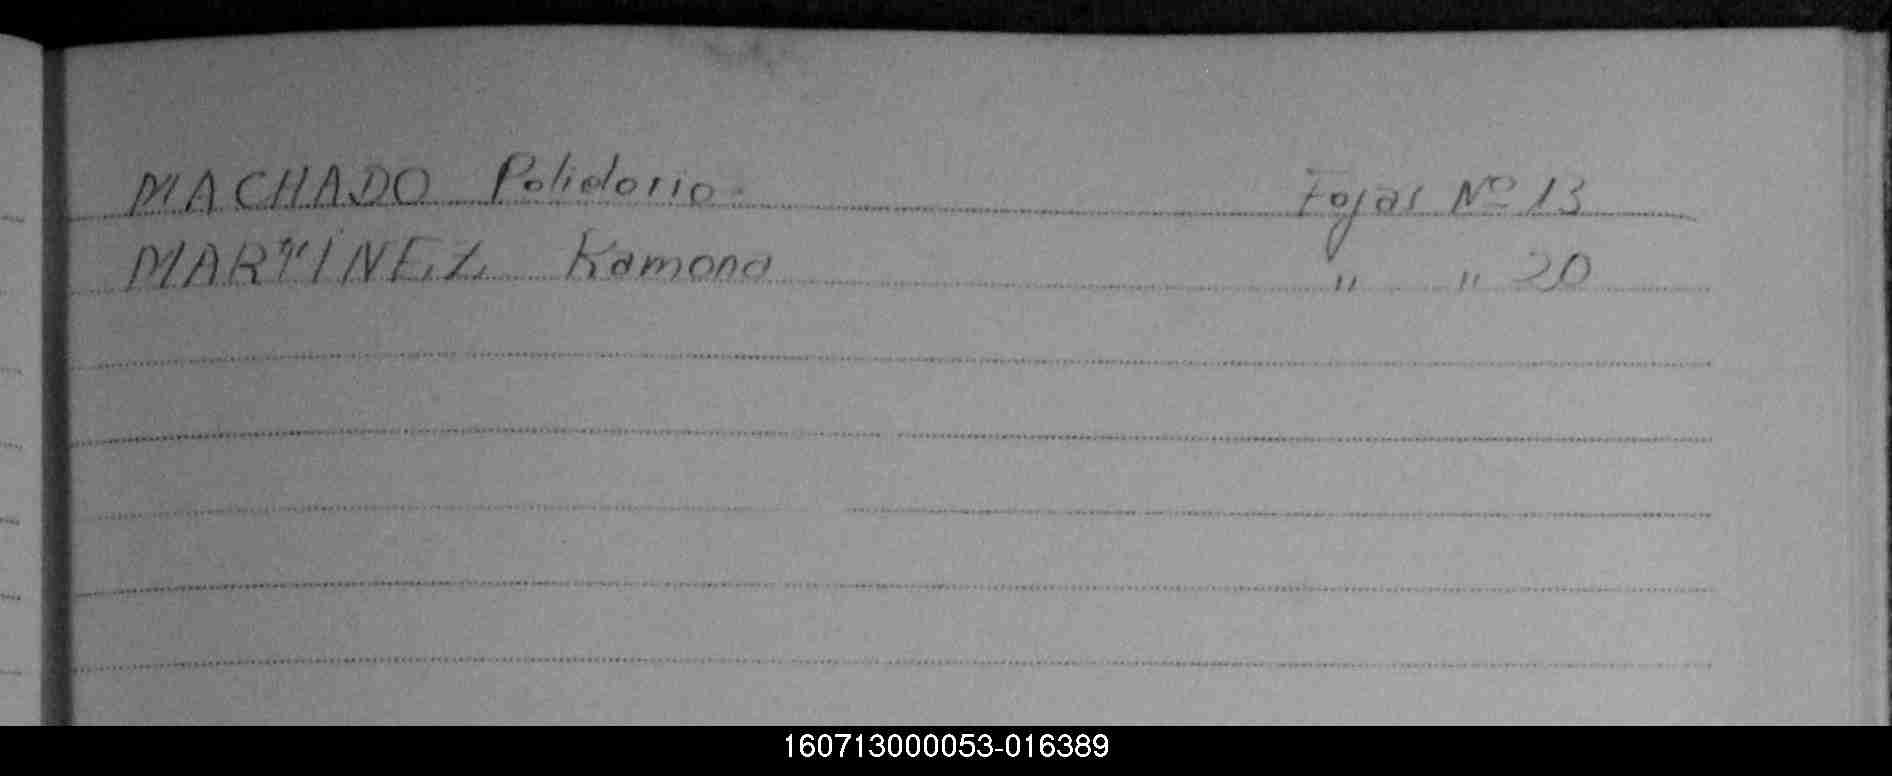 MACHADO Polidorio Fojas Nº 13
MARTINEZ Ramona " " 20
160713000053-016389